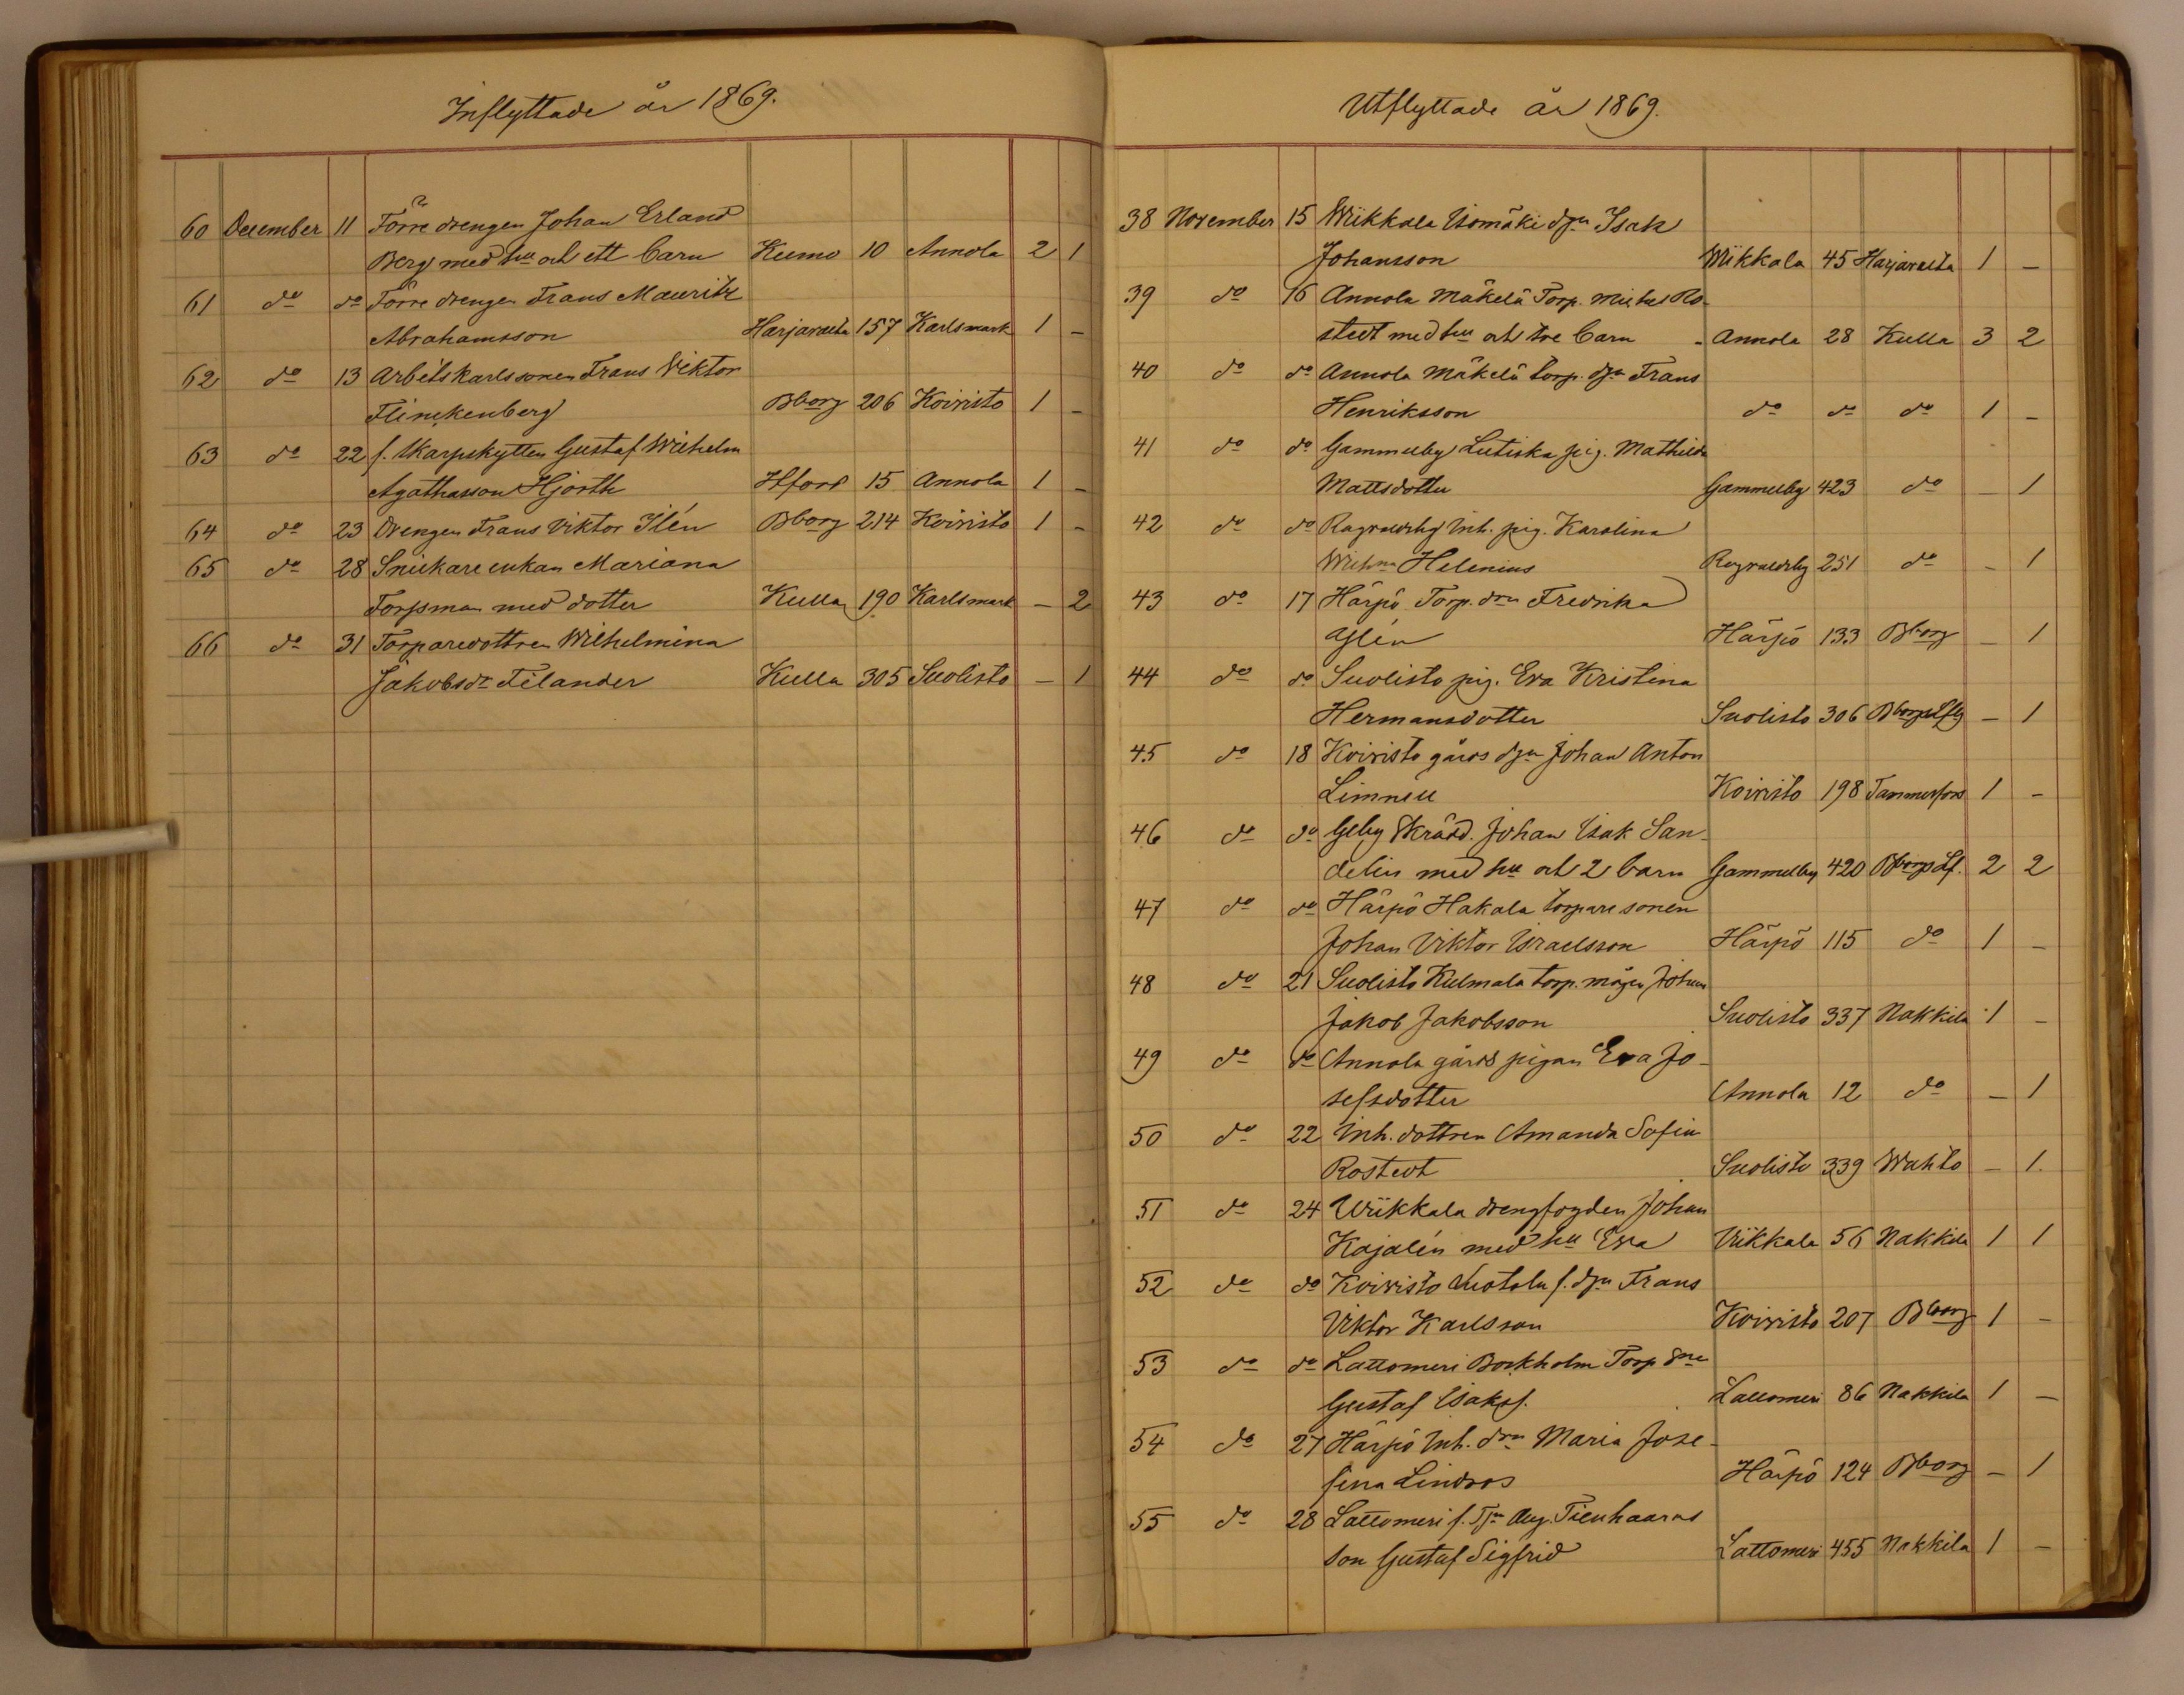 Inflyttade år 1869.
60 December 11 Förre drengen Johan Erland
Berg med hu och ett barn Kumo 10 Annola 2 1
61 do do Förre drengen Frans Mauritz
Abrahamsson Harjavalta 157 Karlsmark 1 –
62 do 13 Arbetskarlssonen Frans Viktor
Flinckenberg Bborg 206 Koivisto 1 –
63 do 22 f. Skarpskytten Gustaf Wilhelm
Agathasson Hjorth Hfors 15 Annola 1 –
64 do 23 Drengen Frans Viktor Ilén Bborg 214 Koivisto 1 –
65 do 28 Snickare enkan Mariana
Forsman med dotter Kulla 190 Karlsmark – 2
66 do 31 Torparedottren Wilhelmina
Jakobsdr Filander Kulla 305 Suolisto – 1
Utflyttade år 1869.
38 November 15 Wiikkala Isomäki dgn Isak
Johansson Wiikkala 45 Harjavalta 1 –
39 do 16 Annola Mäkelä Torp. Michel Ro-
stedt med hu och tre barn Annola 28 Kulla 3 2
40 do do Annola Mäkelä torp. dgn Frans
Henriksson do do do 1 –
41 do do Gammelby Lutiska pig. Mathilda
Mattsdotter Gammelby 423 do – 1
42 do do Ragvaldsby Inh. pig. Karolina
Wilhna Helenius Ragvaldsby 251 do – 1
43 do 17 Härpö Torp. drn Fredrika
Glén Härpö 133 Bborg – 1
44 do do Suolisto pig. Eva Kristina
Hermansdotter Suolisto 306 Bborgs Lfg – 1
45 do 18 Koivisto gårds dgn Johan Anton
Limnell Koivisto 198 Tammerfors 1 –
46 do do Gby Skrädd. Johan Isak San-
delin med hu och 2 barn Gammelby 420 Bborgs Lf. 2 2
47 do do Härpö Hakala torpare sonen
Johan Viktor Israelsson Härpö 115 do 1 –
48 do 21 Suolisto Kulmala torp. mågen Johan
Jakob Jakobsson Suolisto 337 Nakkila 1 –
49 do do Annola gårds pigan Eva Jo-
sefsdotter Annola 12 do – 1
50 do 22 Inh. dottren Amanda Sofia
Rostedt Suolisto 339 Wahto – 1.
51 do 24 Wiikkala drengfogden Johan
Kajalén med hu Eva Viikkala 56 Nakkila 1 1
52 do do Koivisto Luotola f. dgn Frans
Viktor Karlsson Koivisto 207 Bborg 1 –
53 do do Lattomeri Bockholm Torp sne
Gustaf Isakss. Lattomeri 86 Nakkila 1 –
54 do 27 Härpö Inh. drn Maria Jose-
fina Lindros Härpö 124 Bborg – 1
55 do 28 Lattomeri f. Aug. Tienhaaras
son Gustaf Sigfrid Lattomeri 455 Nakkila 1 –